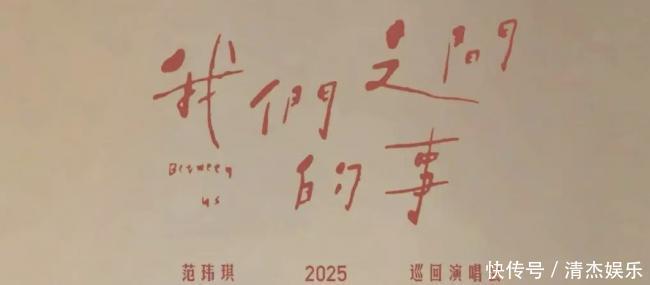 我們之間
的事
Between
us
范玮琪 2025 巡回演唱
快传号/清杰娱乐